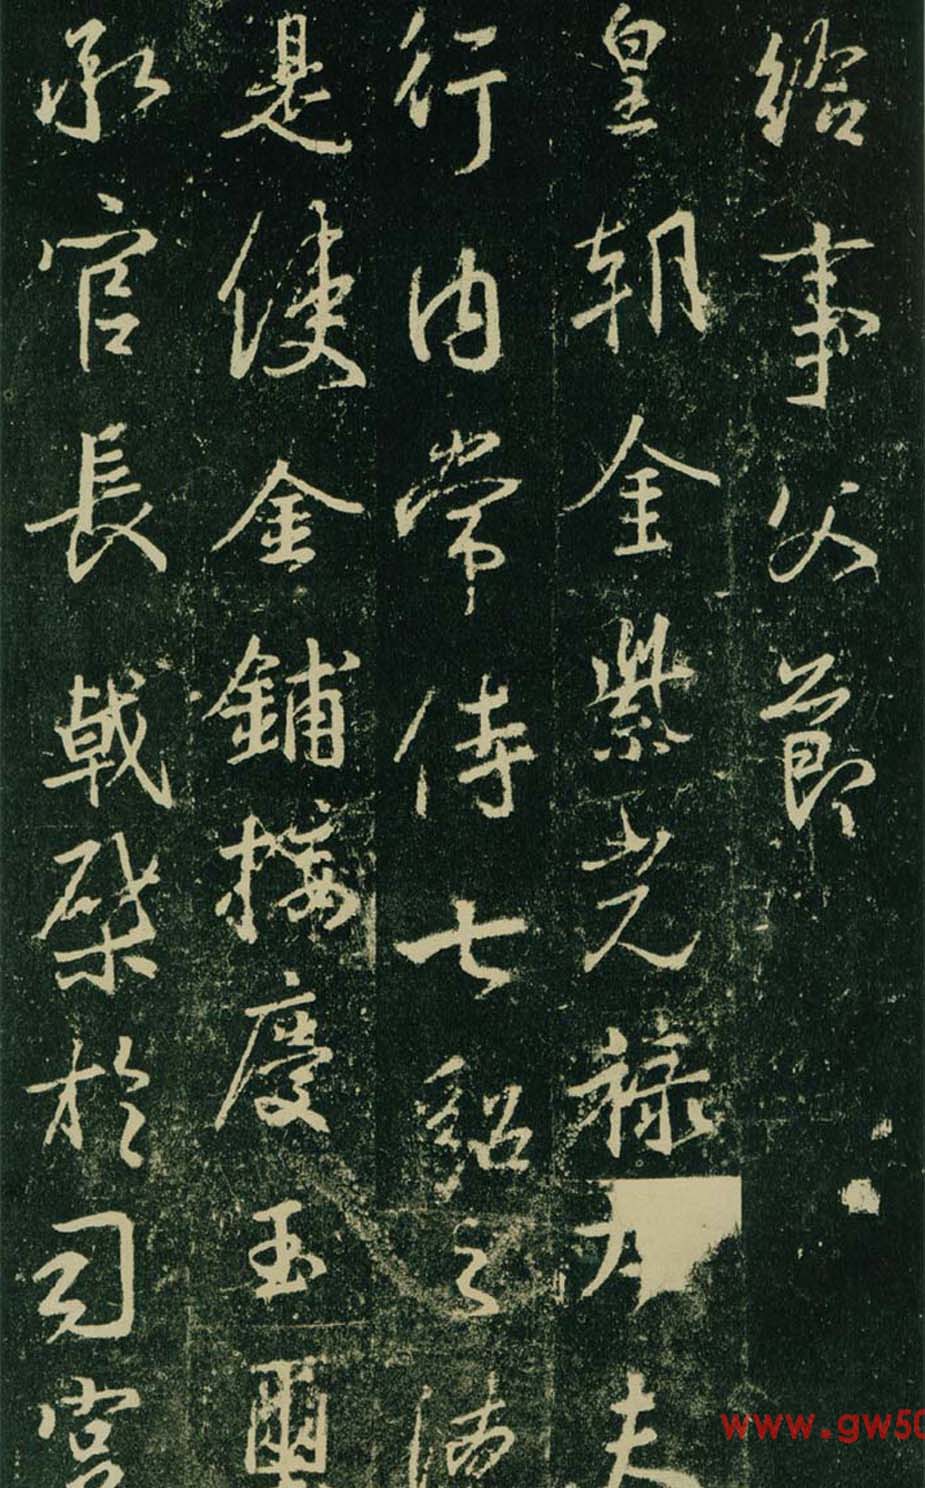 給事父節
皇朝金紫光祿大夫
行內常侍七貂之
是使金鋪接慶玉璽
承官長戟棨於司宮
www.gw50